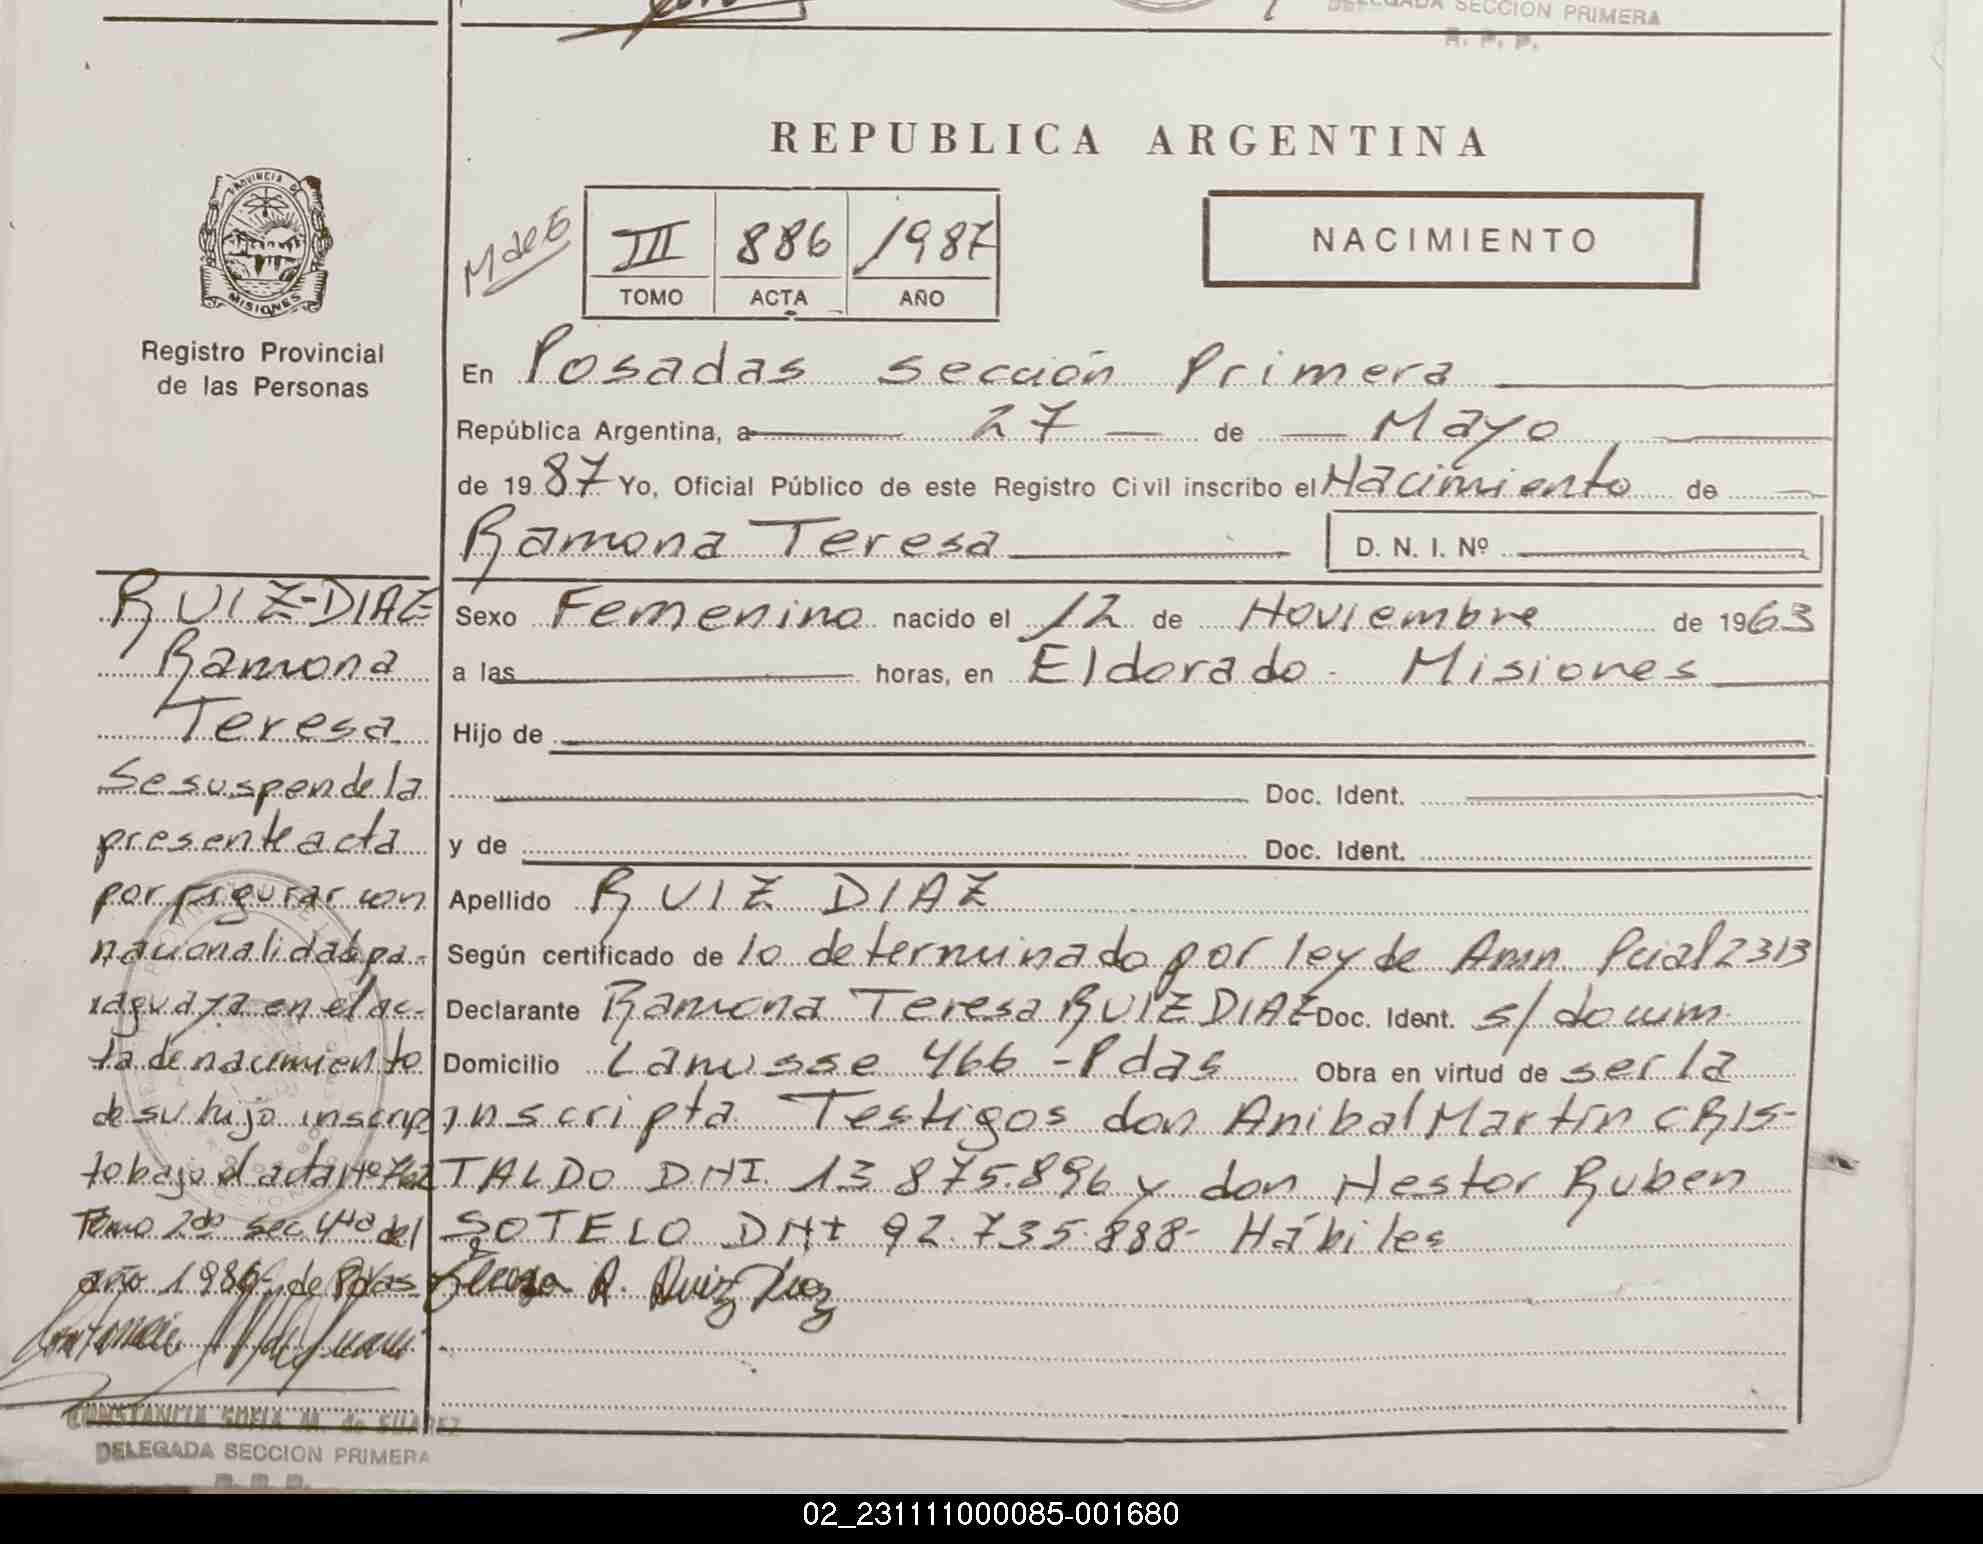 DELEGADA SECCION PRIMERA
R. P. P.
REPUBLICA ARGENTINA
PROVINCIA DE
MISIONES
Registro Provincial
de las Personas
M de E
III 886 1987
TOMO ACTA AÑO
NACIMIENTO
En Posadas sección Primera
República Argentina, a 27 de Mayo
de 1987 Yo, Oficial Público de este Registro Civil inscribo el Nacimiento de
Ramona Teresa D. N. I. Nº
Sexo Femenino nacido el 12 de Noviembre de 1963
a las horas, en Eldorado - Misiones
Hijo de
Doc. Ident.
y de Doc. Ident.
Apellido RUIZ DIAZ
Según certificado de lo determinado por ley de Amn. Pcial 2313
Declarante Ramona Teresa RUIZ DIAZ Doc. Ident. s/ docum.
Domicilio Lanusse 466 - Pdas Obra en virtud de ser la
inscripta. Testigos don Anibal Martín CRIS-
TALDO DNI. 13.875.896 y don Nestor Ruben
SOTELO DNI 92.735.888- Hábiles
R. Ruiz Diaz
RUIZ-DIAZ
Ramona
Teresa
Se suspende la
presente acta
por figurar con
nacionalidad pa-
raguaya en el ac-
ta de nacimiento
de su hijo inscrip
to bajo el acta Nº 762
Tomo 2do sec 4ta del
año 1986, de Pdas
CONSTANCIA SOFIA M. de SUAREZ
DELEGADA SECCION PRIMERA
R. P. P.
02_231111000085-001680